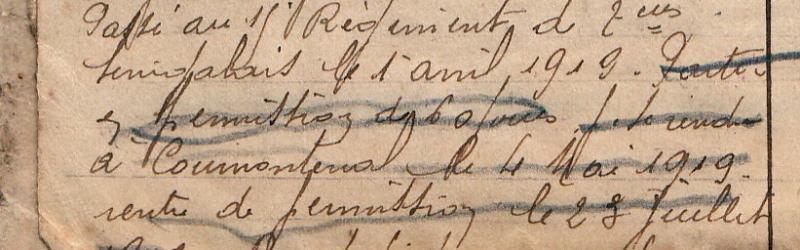 Passé au 15e Régiment de Teurs
Senegalais le 1 avril 1919. Partir
en permission de 60 jours se rendre
à Coumontena le 4 Mai 1919.
rentré de permission le 23 juillet